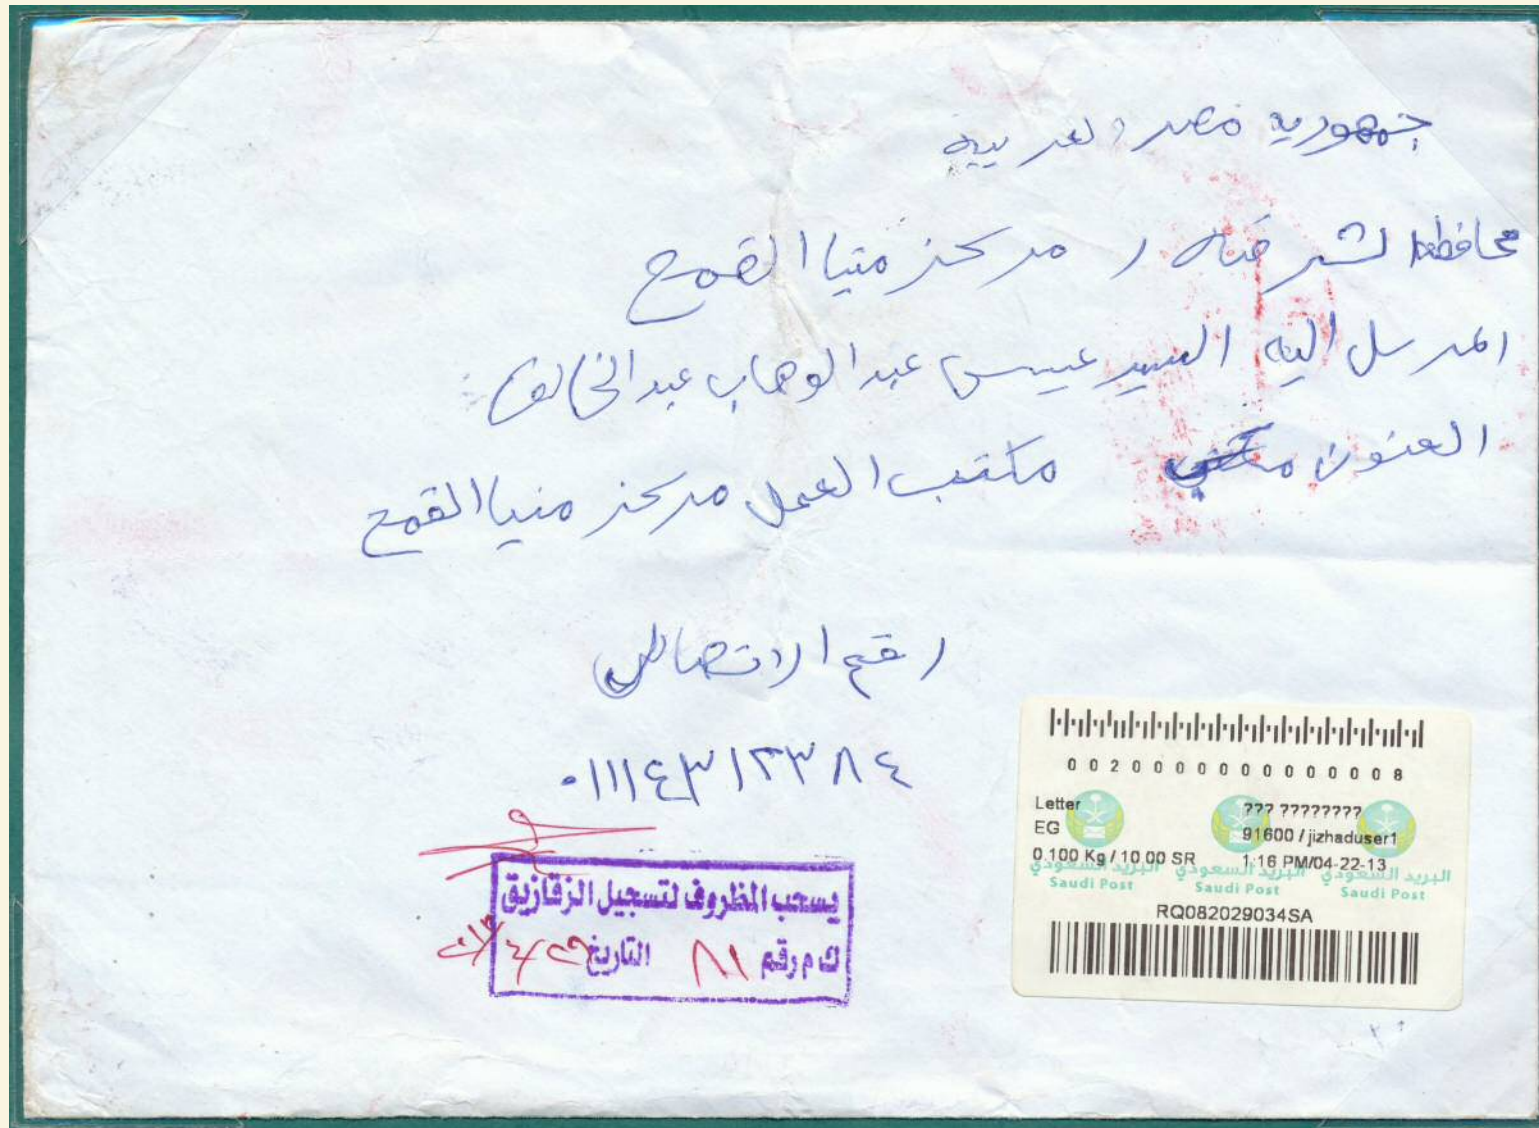 جمهورية مصر العربية
محافظة الشرقية / مركز منيا القمح
المرسل اليه السيد عيسى عبد الوهاب عبد الخالق
العنون مكتب العمل مركز منيا القمح
رقم الاتصال
٠١١١٤٣١٢٣٨٤
يسحب المظروف لتسجيل الزقازيق
ك م رقم ٨١ التاريخ
0 0 2 0 0 0 0 0 0 0 0 0 0 0 0 8
Letter ??? ????????
EG 91600 / jizhaduser1
0.100 Kg / 10.00 SR 1:16 PM/04-22-13
البريد السعودي البريد السعودي البريد السعودي
Saudi Post Saudi Post Saudi Post
RQ082029034SA